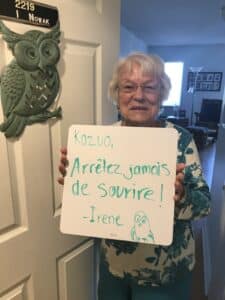 2219
I Nowak
Kozuo,
Arrêtez jamais
de sourire!
-Irene